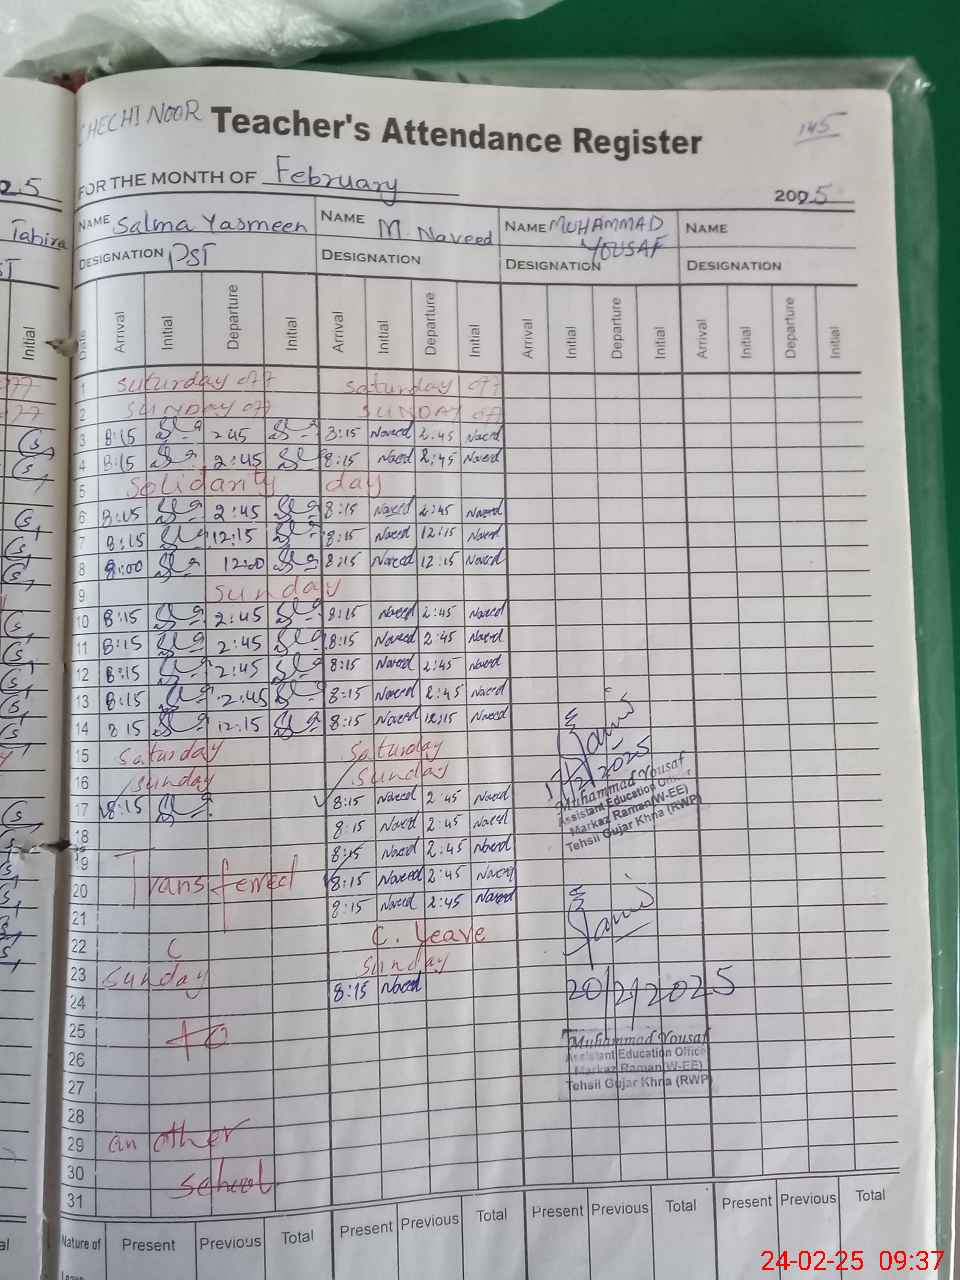 CHECHI NOOR Teacher's Attendance Register 145
FOR THE MONTH OF February 2025
NAME Salma Yasmeen NAME M. Naveed NAME MUHAMMAD YOUSAF NAME
DESIGNATION PST DESIGNATION DESIGNATION DESIGNATION
Date Arrival Initial Departure Initial Arrival Initial Departure Initial Arrival Initial Departure Initial Arrival Initial Departure Initial
1 Suturday off Saturday off
2 SUNDAY off SUNDAY off
3 8:15 2:45 8:15 Naveed 2:45 Naveed
4 8:15 2:45 8:15 Naveed 2:45 Naveed
5 Solidarity day
6 8:15 2:45 8:15 Naveed 2:45 Naveed
7 8:15 12:15 8:15 Naveed 12:15 Naveed
8 8:00 12:00 8:15 Naveed 12:15 Naveed
9 Sunday
10 8:15 2:45 8:15 Naveed 2:45 Naveed
11 8:15 2:45 8:15 Naveed 2:45 Naveed
12 8:15 2:45 8:15 Naveed 2:45 Naveed
13 8:15 2:45 8:15 Naveed 2:45 Naveed
14 8:15 12:15 8:15 Naveed 12:15 Naveed
15 Saturday Saturday
16 Sunday Sunday
17 8:15 8:15 Naveed 2:45 Naveed
18 8:15 Naveed 2:45 Naveed
19 8:15 Naveed 2:45 Naveed
20 Transferred 8:15 Naveed 2:45 Naveed
21 8:15 Naveed 2:45 Naveed
22 C. Leave
23 Sunday Sunday
24 8:15 Naveed
25 to
26
27
28
29 an other
30
31 school
2025
Muhammad Yousaf
Assistant Education Officer
Markaz Raman(W-EE)
Tehsil Gujar Khna (RWP)
20/2/2025
Muhammad Yousaf
Assistant Education Office
Markaz Raman(W-EE)
Tehsil Gujar Khna (RWP)
Nature of Present Previous Total Present Previous Total Present Previous Total Present Previous Total
Tahira
Initial
24-02-25 09:37